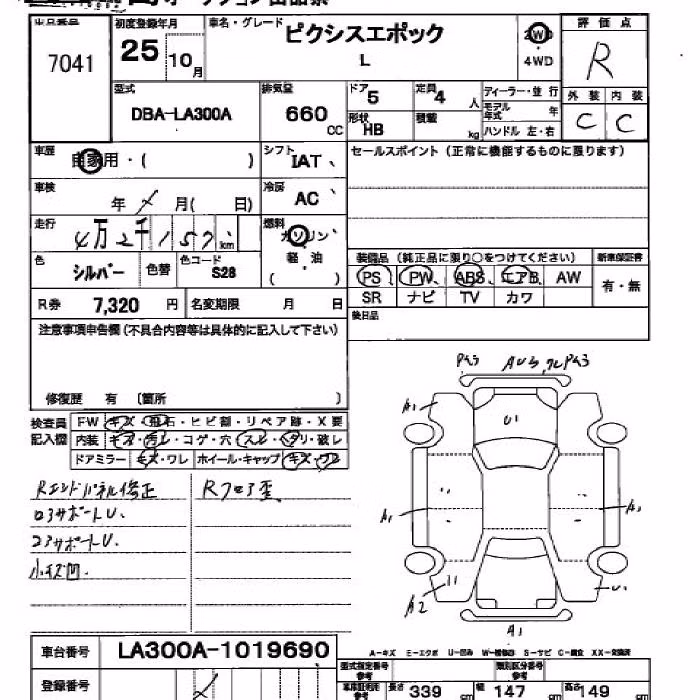 出品番号 初度登録年月 車名・グレード ピクシスエポック 2WD 評価点
7041 25 10月 L 4WD R
型式 DBA-LA300A 排気量 660 CC ドア 5 定員 4 人 ディーラー・並行 外装 内装
モデル年式 年 C C
形状 HB 積載 kg ハンドル 左・右
車歴 自家用・( ) シフト IAT セールスポイント (正常に機能するものに限ります)
車検 年 月( 日) 冷房 AC
走行 4万2千157 km 燃料 ガソリン
軽・油
( )
色 シルバー 色替 色コード S28 装備品 (純正品に限り○をつけてください) 新車保証書
PS PW ABS エアB AW 有・無
R券 7,320 円 名変期限 月 日 SR ナビ TV カワ
後日品
注意事項申告欄(不具合内容等は具体的に記入して下さい)
修復歴 有 〔箇所 〕
検査員記入欄 FW キズ・飛石・ヒビ割・リペア跡・X要
内装 キズ・汚レ・コゲ・穴・スレ・ヘタリ・破レ
ドアミラー キズ・ワレ ホイール・キャップ キズ・ワレ
Rエンドパネル修正 Rフロア歪
ロアサポートU.
コアサポートU.
小キズ凹.
A1
U1
A1 A1
A2 U1
A1
A-キズ E-エクボ U-凹み W-補修跡 S-サビ C-腐食 XX-交換済
車台番号 LA300A-1019690
型式指定番号 参考 類別区分番号 参考
登録番号
車庫証明用 参考 長さ 339 cm 幅 147 cm 高さ 149 cm